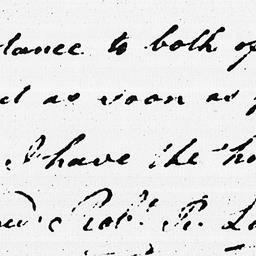 dance to both of
as soon as
I have the ho
Rob.t R. L